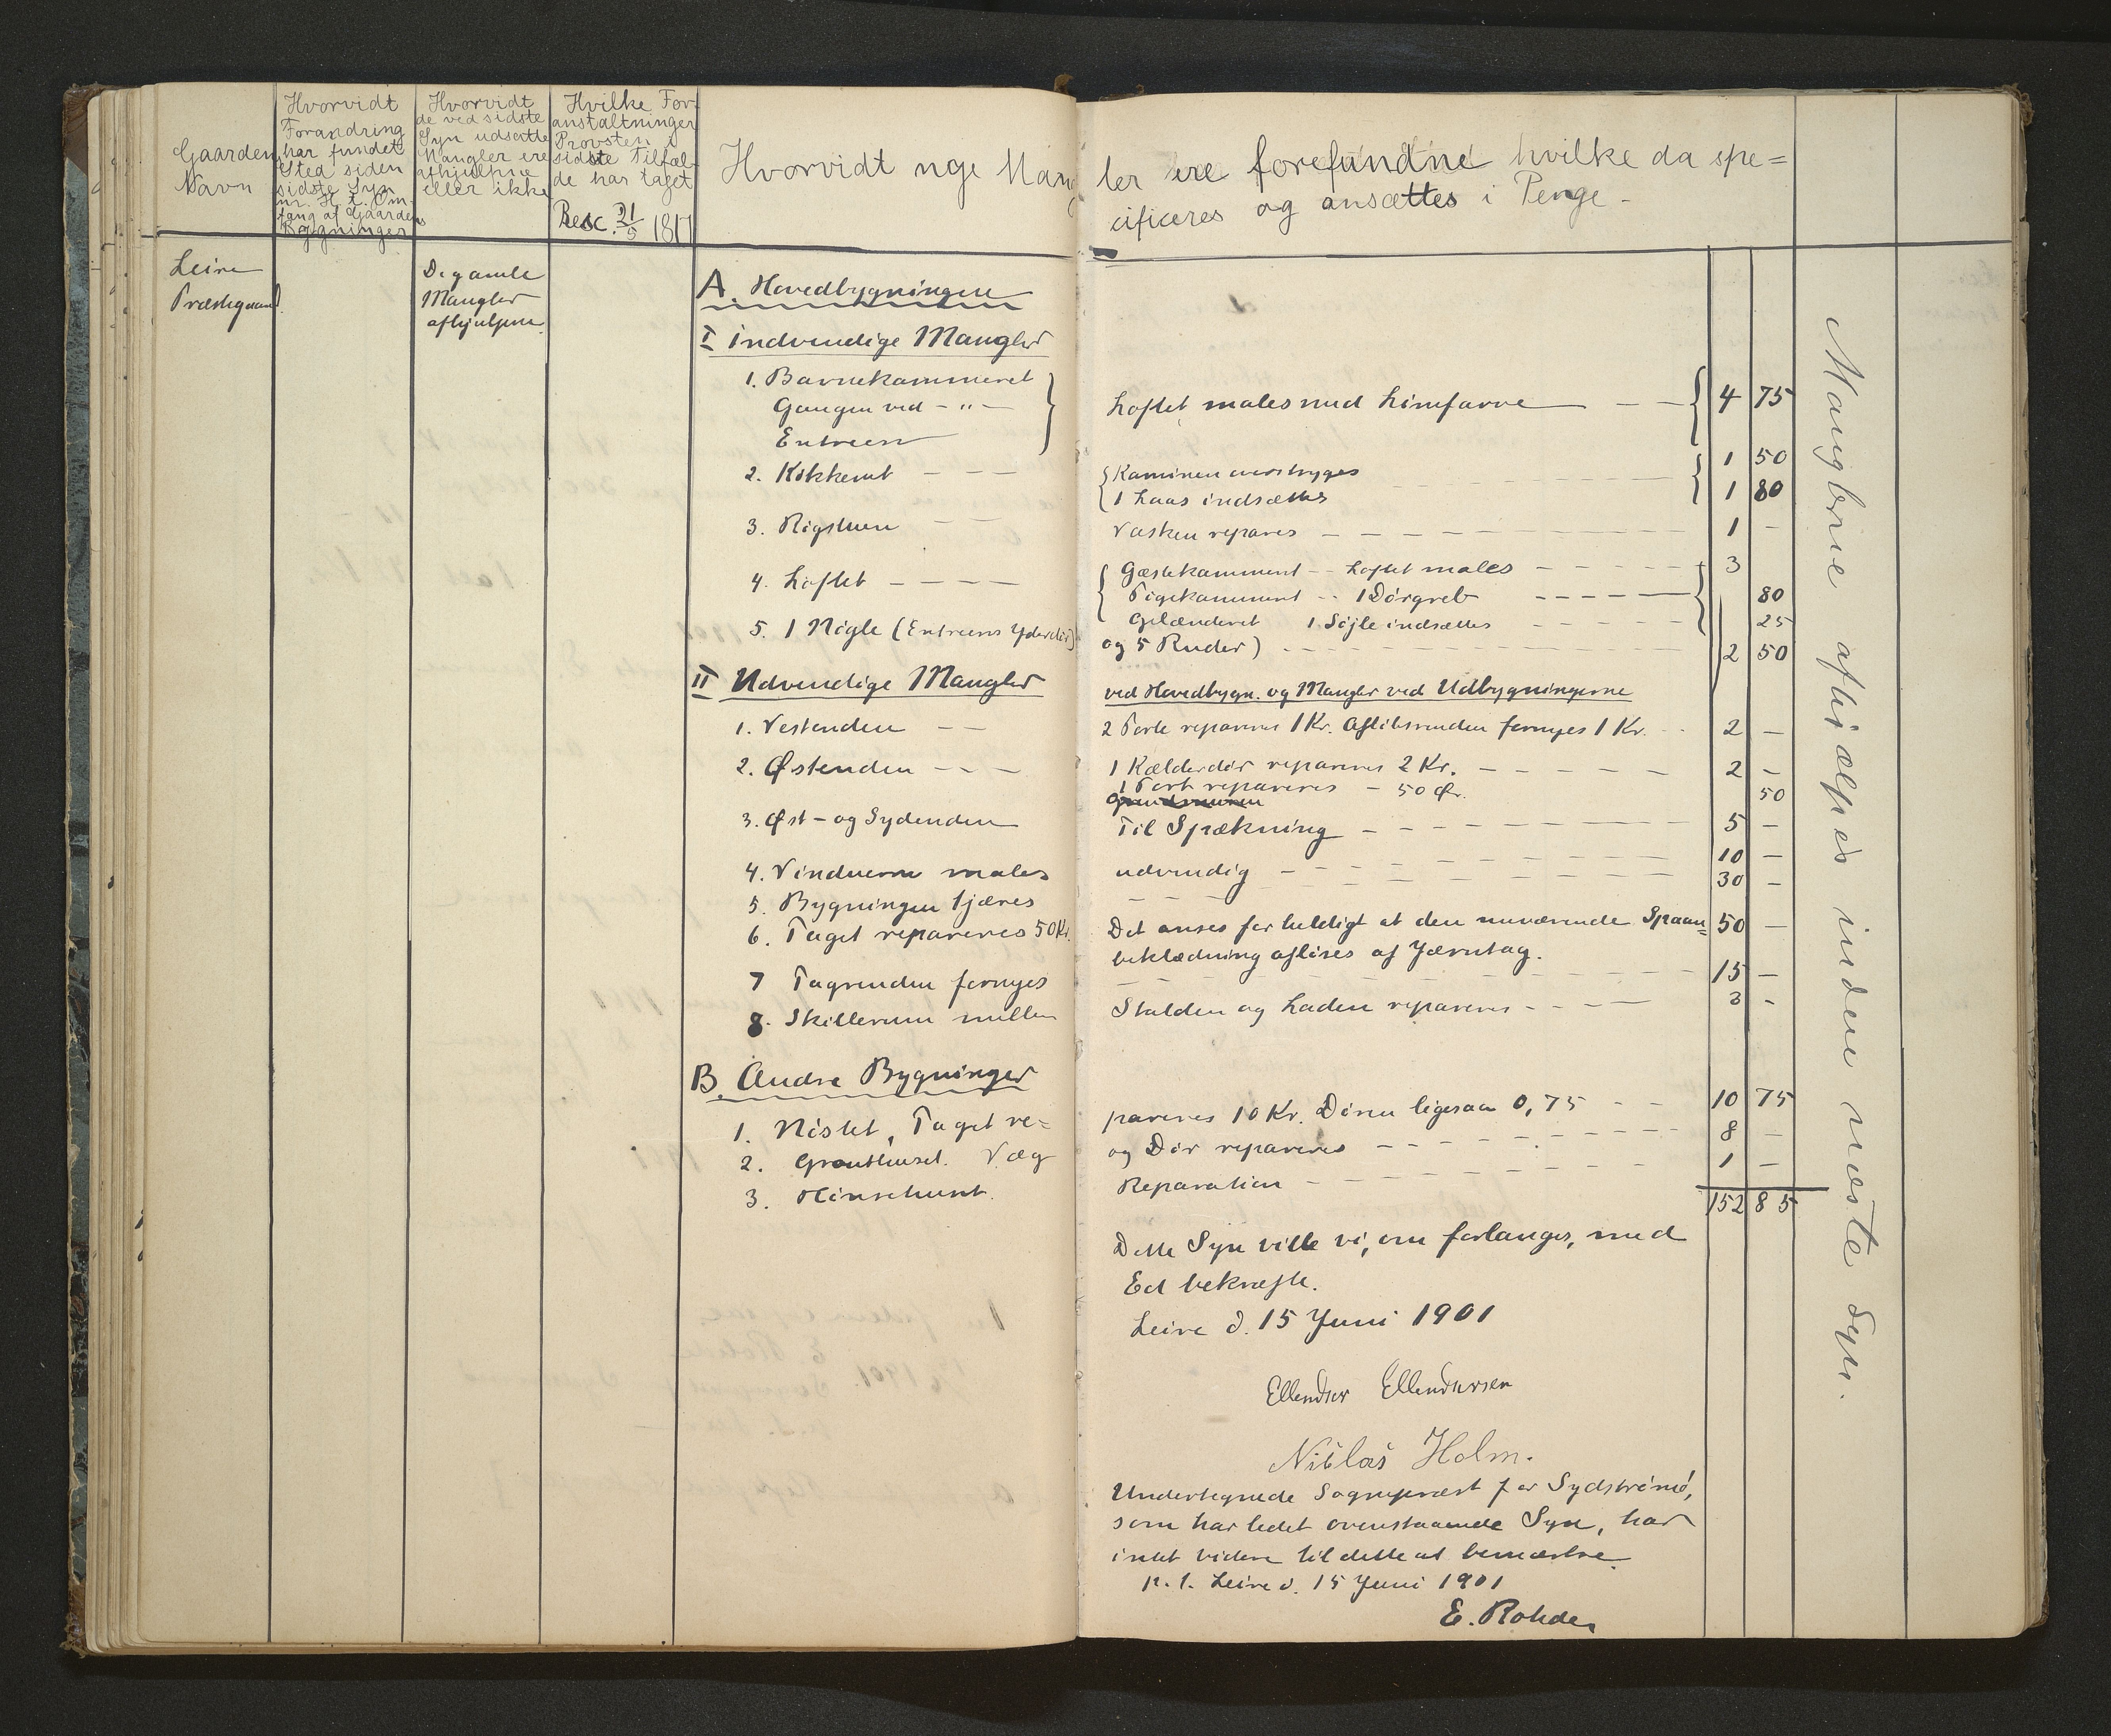 Gaardens
Navn
Hvorvidt
Forandring
har fundet
Sted siden
sidste Syn
m. H. t. Om-
fang af Gaardens
Bygninger
Hvorvidt
de ved sidste
Syn udsatte
Mangler ere
afhjulpne
eller ikke
Hvilke For-
anstaltninger
Provsten i
sidste Tilfæl-
de har taget
Resc. 21/5 1817
Hvorvidt nye Mang
ler ere forefundne hvilke da spe=
cificeres og ansættes i Penge -
Leire
Præstegaard
De gamle
Mangler
afhjulpne.
A. Hovedbygningen
I indvendige Mangler
1. Barnekammeret
Gangen ved - " -
Entreen
Loftet males med Limfarve — — 4 75
2. Køkkenet — — —
Kaminen overstryges 1 50
1 Laas indsættes 1 80
3. Rigstuen — —
Vasken repares — — — 1 —
4. Loftet — — — —
Gæstekammeret - - Loftet males — — 3
Pigekammeret - - 1 Dørgreb — — 80
Gelænderet 1 Søjle indsættes — — 25
5. 1 Nøgle (Entreens Yderdør)
og 5 Ruder) — — — 2 50
II Udvendige Mangler
ved Hovedbygn. og Mangler ved Udbygningerne
1. Vestenden — —
2 Porte repareres 1 Kr. Afløbsrenden fornyes 1 Kr. - - 2 —
2. Østenden — — —
1 Kælderdør repareres 2 Kr. — — — 2 —
1 Port repareres — 50 Ør. 50
Grundmuren
3. Øst - og Sydenden
Til Spækning — — — 5 —
4. Vinduerne males
udvendig — — — 10 —
5. Bygningen tjæres
— — — 30 —
6. Taget repareres 50 Kr.
Det anses for heldigt at den nuværende Spaan= 50 —
beklædning afløses af Jærntag.
7 Tagrenden fornyes
— — — 15 —
8. Skillerum mellem
Stalden og Laden repareres — — — 3 -
B. Andre Bygninger
1. Naustet, Taget re=
pareres 10 Kr. Døren ligesaa 0,75 — — 10 75
2. Grouthuset. Væg
og Dør repareres — — — 8 —
3. Hønsehuset.
Reparation — — — 1 —
152 85
Dette Syn ville vi, om forlanges, med
Ed bekræfte.
Leire d. 15 Juni 1901
Ellendser Ellendsersen
Niklas Holm.
Undertegnede Sognepræst for Sydstrømø,
som har ledet ovenstaaende Syn, har
intet videre til dette at bemærke.
p. t. Leire d. 15 Juni 1901
E. Rohde
Manglerne afhjælpes inden næste Syn.